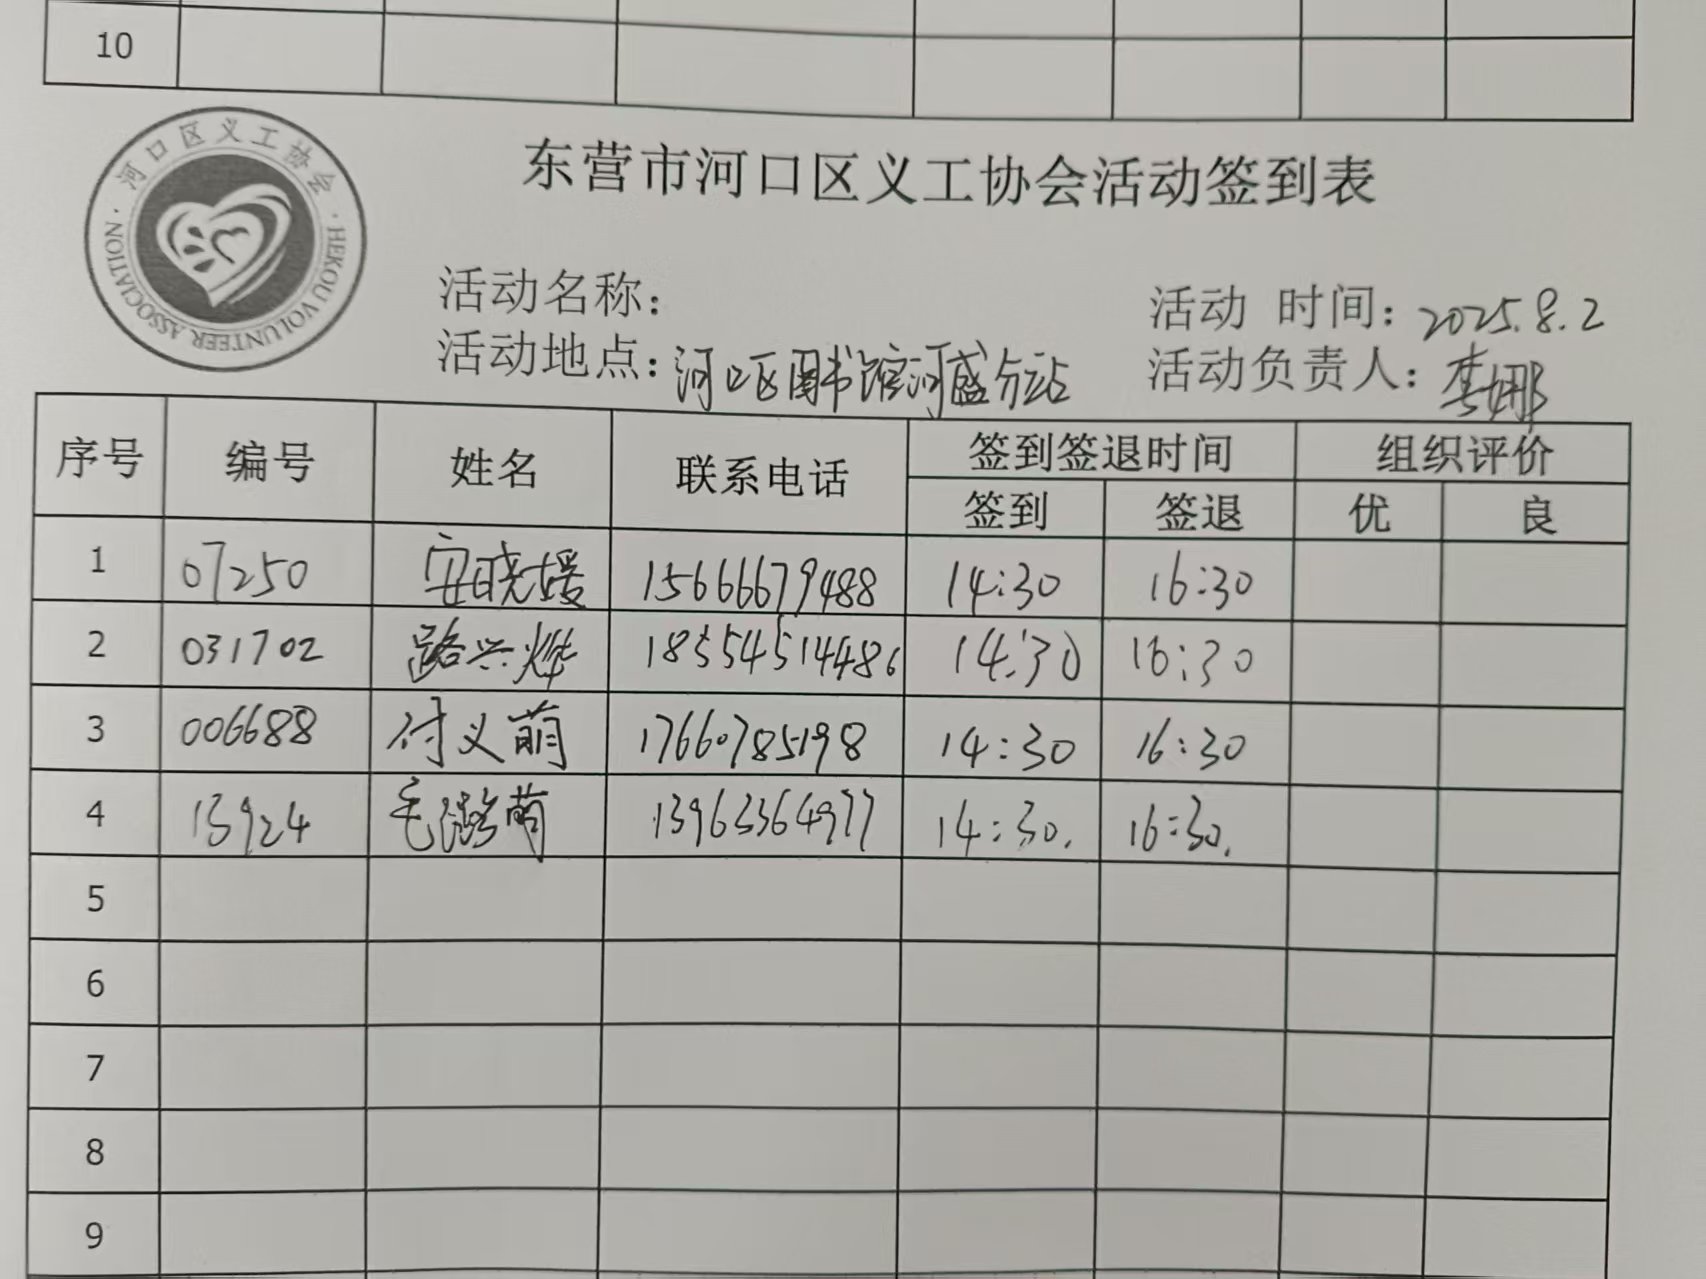 10
河口区义工协会
HEKOU VOLUNTEER ASSOCIATION
东营市河口区义工协会活动签到表
活动名称：
活动 时间：2025.8.2
活动地点：河口区图书馆河盛分站
活动负责人：李娜
序号 编号 姓名 联系电话 签到签退时间 组织评价
签到 签退 优 良
1 07250 安晓媛 15666679488 14:30 16:30
2 031702 路兴烨 18554514486 14:30 16:30
3 006688 付义萌 17660785198 14:30 16:30
4 13924 毛潞萌 13963364977 14:30. 16:30.
5
6
7
8
9